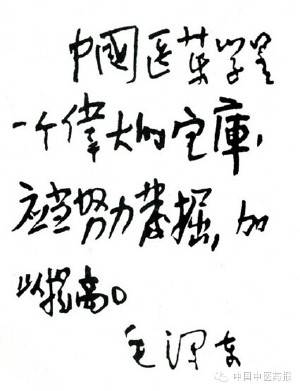 中國医药学是
一个偉大的宝庫，
应当努力发掘，加
以提高。
毛泽东
中国中医药报